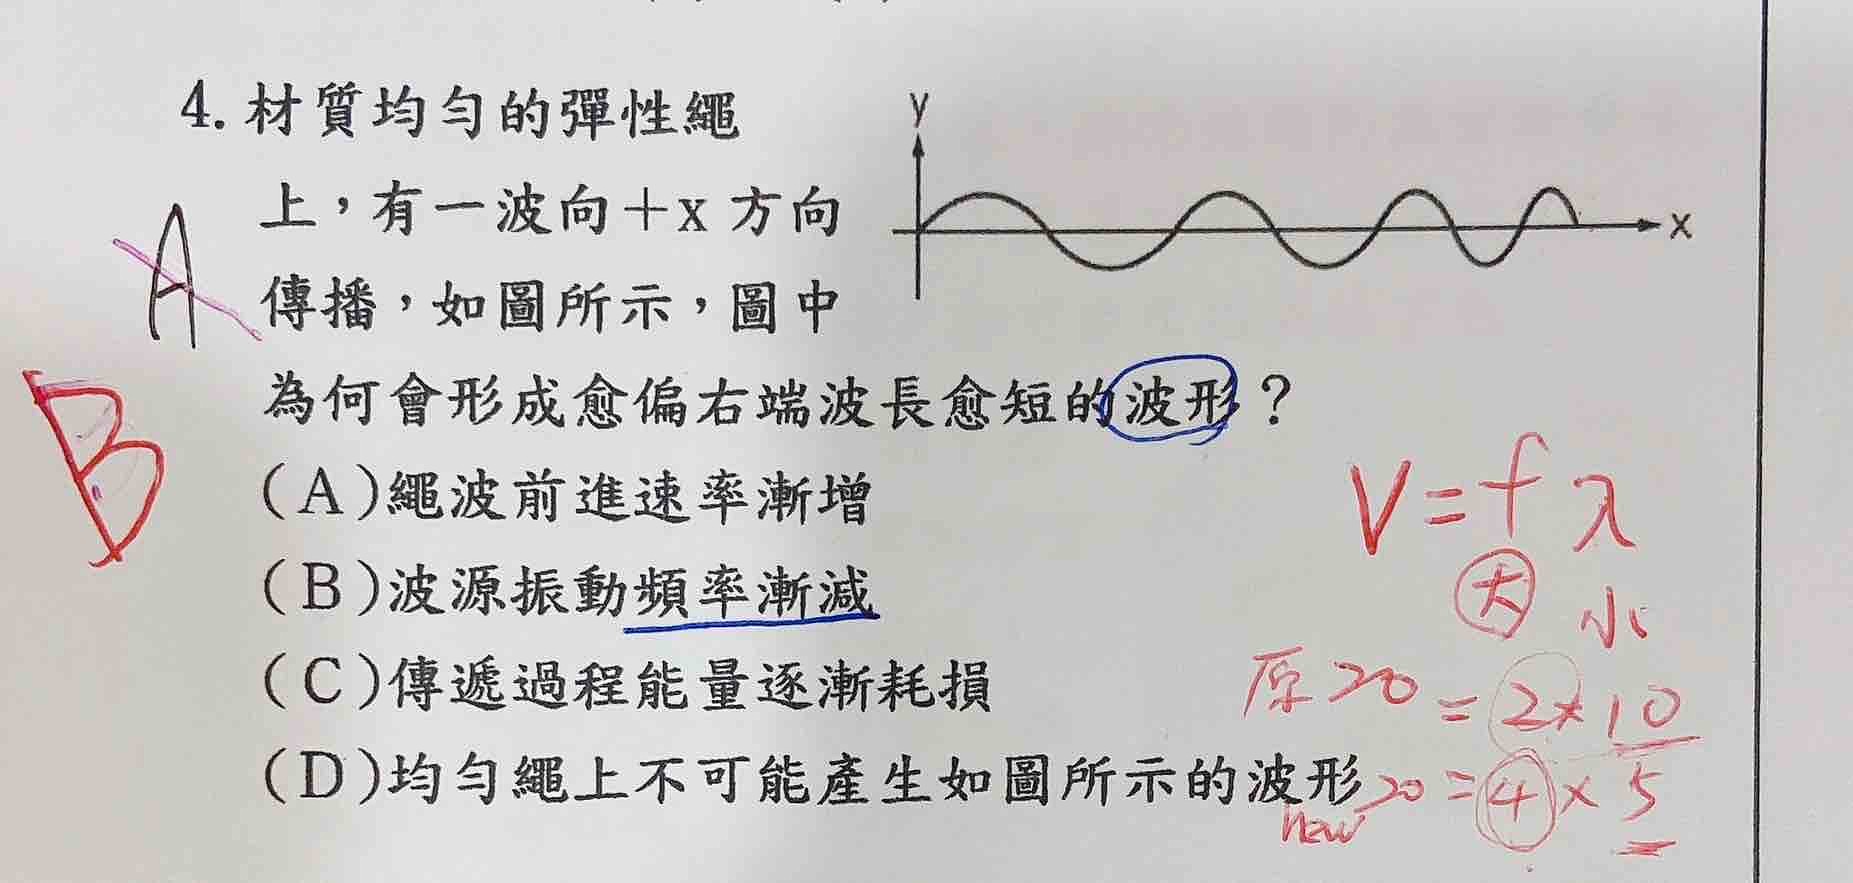 4. 材質均勻的彈性繩
上，有一波向＋x 方向
傳播，如圖所示，圖中
為何會形成愈偏右端波長愈短的波形？
(A)繩波前進速率漸增
(B)波源振動頻率漸減
(C)傳遞過程能量逐漸耗損
(D)均勻繩上不可能產生如圖所示的波形
y
x
A
B
V = f λ
大 小
原 20 = 2 × 10
new 20 = 4 × 5